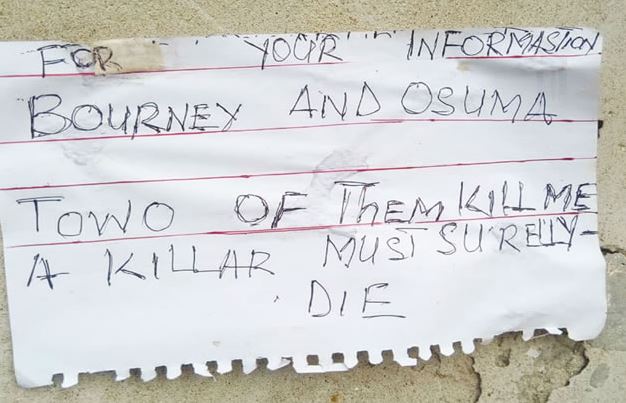 FOR YOUR INFORMASTION
BOURNEY AND OSUMA
TOWO OF THEM KILL ME
A KILLAR MUST SURELY-
DIE